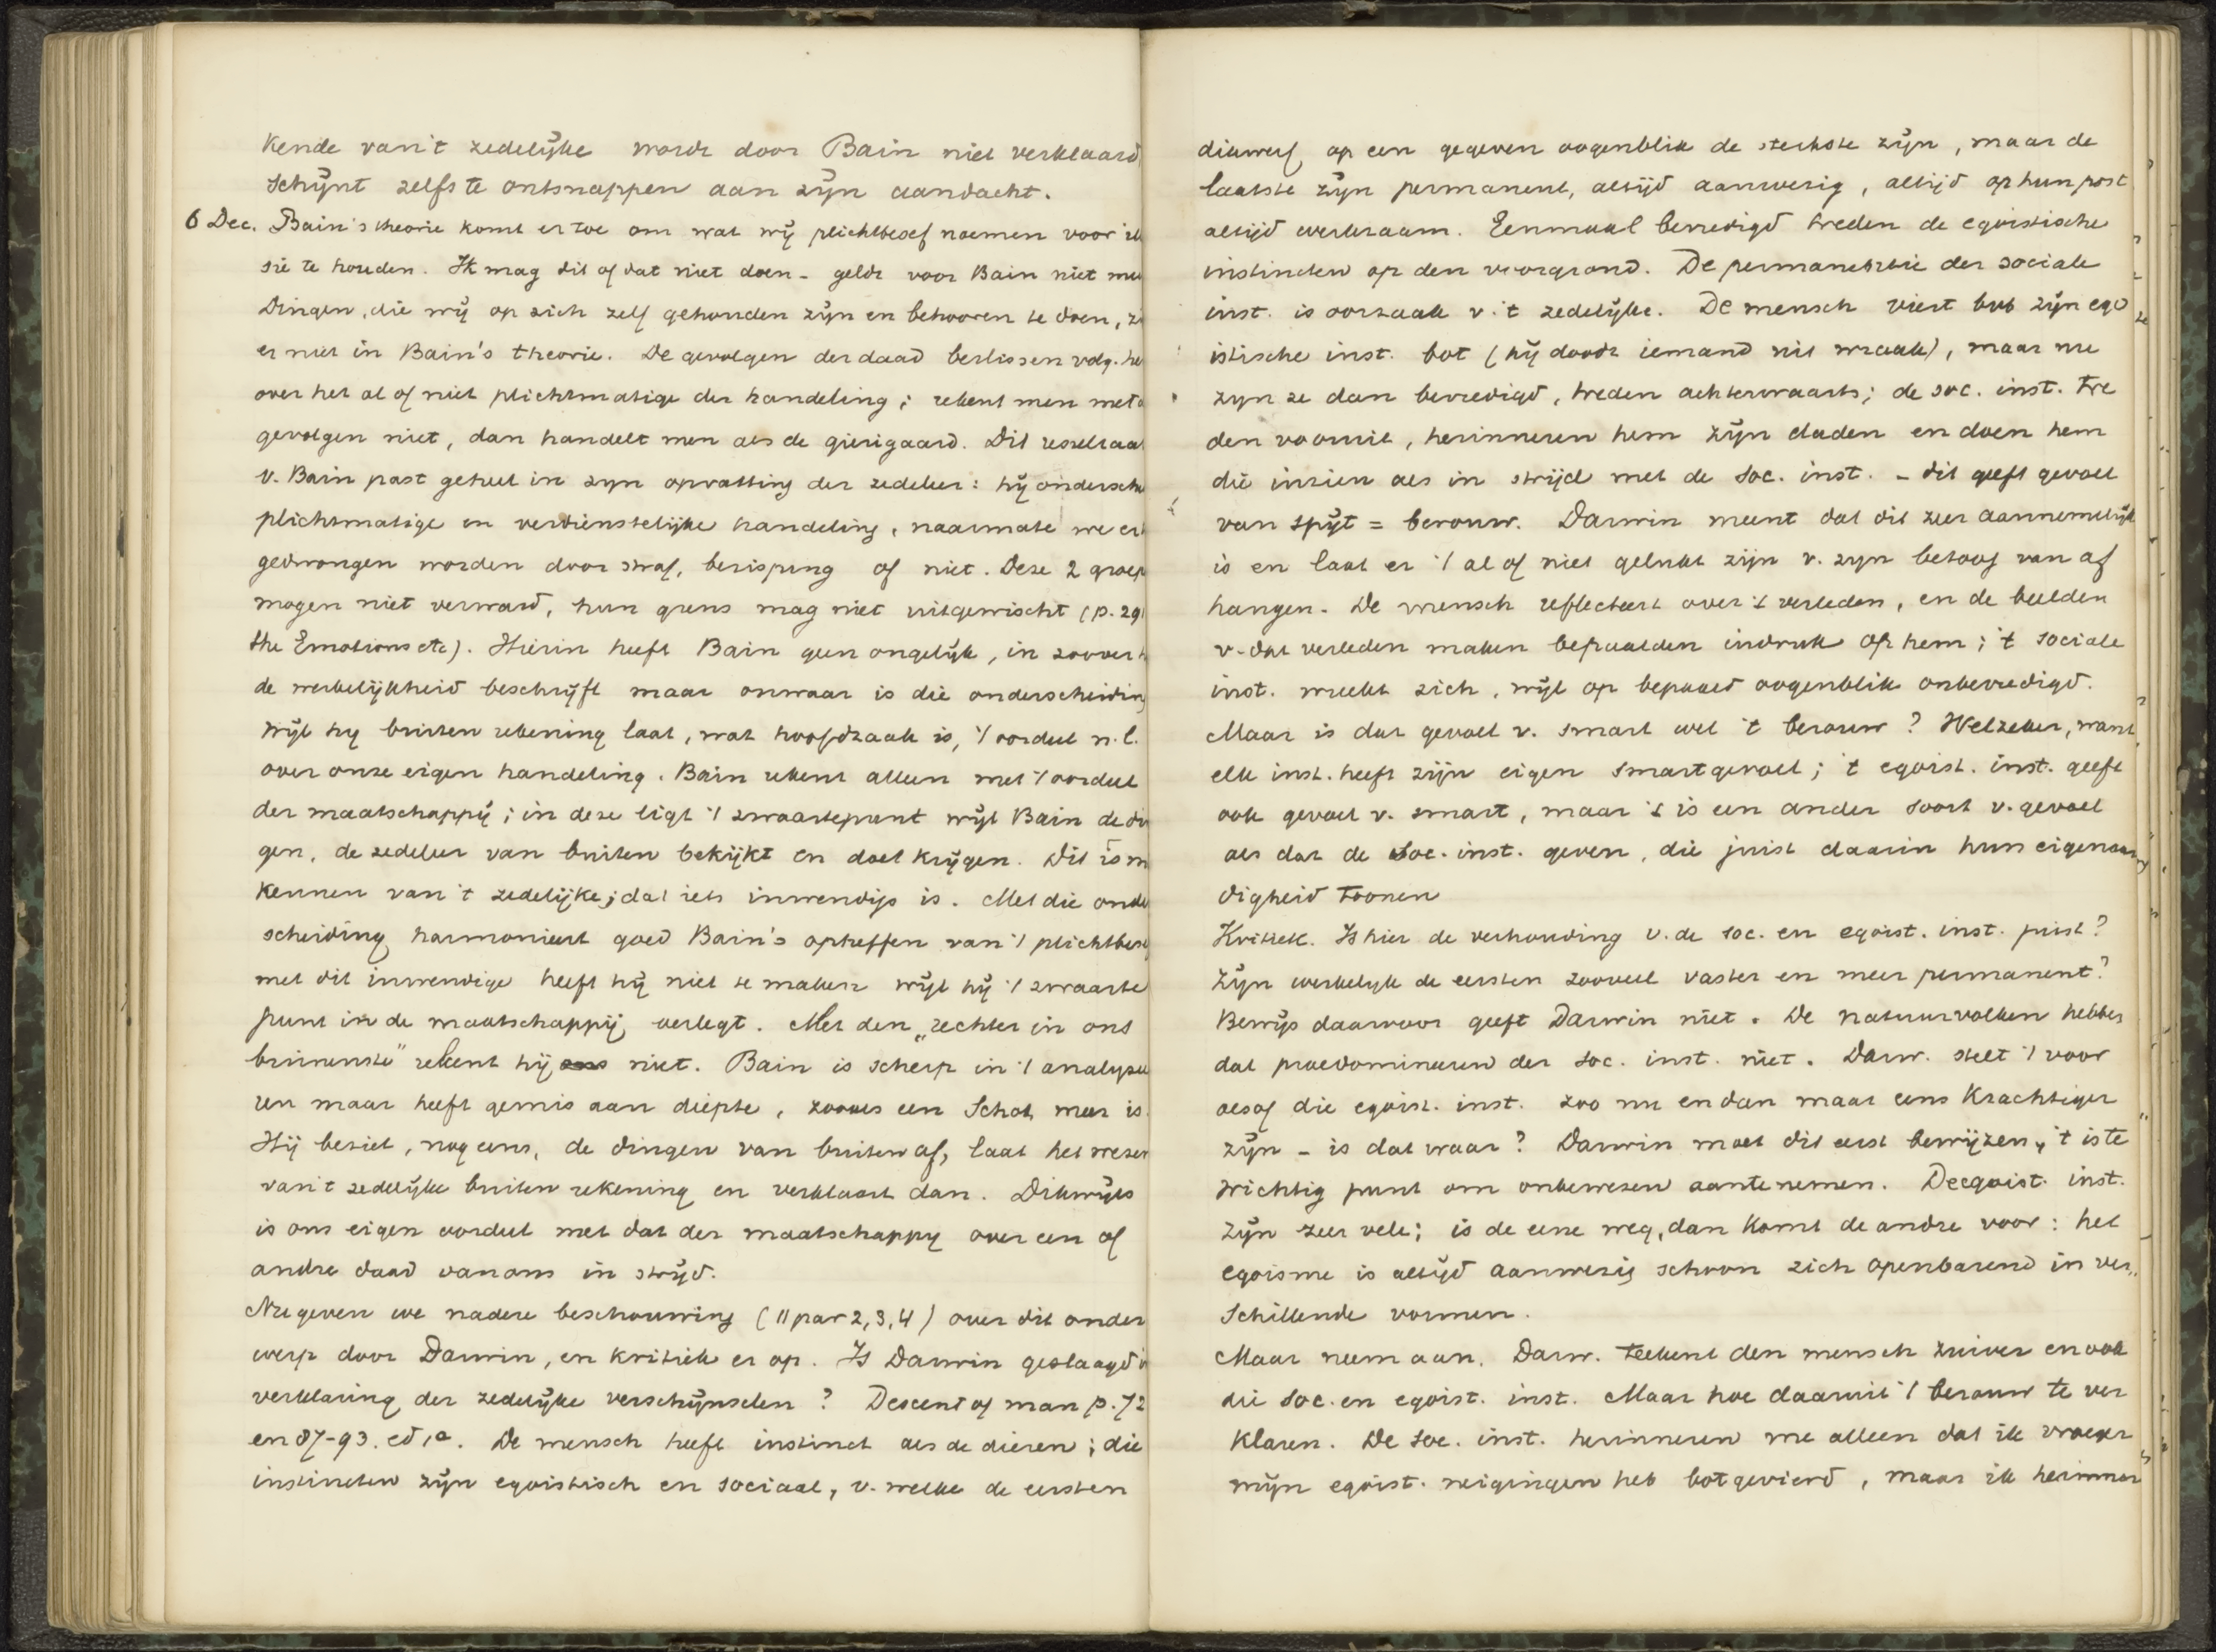 kende van 't zedelijke wordt door Bain niet verklaard
schijnt zelfs te ontsnappen aan zijn aandacht.
6 Dec. Bain's theorie komt er toe om wat wij plichtbesef noemen voor
sie te houden. Ik mag dit of dat niet doen - geldt voor Bain niet
Dingen, die wij op zich zelf gehouden zijn en behooren te doen,
er niet in Bain's theorie. De gevolgen der daad beslissen volg.
over het al of niet plichtmatige der handeling; rekent men met
gevolgen niet, dan handelt men als de gierigaard. Dit
v. Bain past geheel in zyn opvatting der zedeleer: hij ondersche
plichtmatige en verdienstelijke handeling, naarmate we er
gedwongen worden door straf, berisping of niet. Deze 2 groep
mogen niet verward, hun grens mag niet uitgewischt (p. 29
the Emotions etc). Hierin heeft Bain geen ongelijk, in zoover
de werkelijkheid beschrijft maar onwaar is die onderscheiding
wijl hy buiten rekening laat, wat hoofdzaak is, 't oordeel n.l.
over onze eigen handeling. Bain rekent alleen met 't oordeel
der maatschappij; in deze ligt 't zwaartepunt wijl Bain de din
gen, de zedeleer van buiten bekijkt en doet krijgen. Dit is m
kennen van 't zedelijke; dat iets inwendigs is. Met die onde
scheiding harmonieert goed Bain's opheffen van 't plichtbese
met dit inwendige heeft hij niet te maken wijl hij 't zwaarte
punt in de maatschappij verlegt. Met den „rechter in ons
binnenste" rekent hij niet. Bain is scherp in 't analysee
ren maar heeft gemis aan diepte, zooals een Schot meer is.
Hij beziet, nog eens, de dingen van buiten af, laat het wezen
van 't zedelijke buiten rekening en verklaart dan. Dikwijls
is ons eigen oordeel met dat der maatschappy over een of
andre daad van ons in strijd.
Nu geven we nadere beschouwing (11 par 2, 3, 4) over dit onder
werp door Darwin, en kritiek er op. Is Darwin geslaagd in
verklaring der zedelijke verschijnselen? Descent of man p. 72
en 87-93. ed 1e. De mensch heeft instinct als de dieren; die
instincten zijn egoistisch en sociaal, v. welke de eersten
dikwerf op een gegeven oogenblik de sterkste zijn, maar de
laatste zijn permanent, altijd aanwezig, altijd op hun post
altijd werkzaam. Eenmaal bevredigd treden de egoistische
instincten op den voorgrond. De permanentie der sociale
inst. is oorzaak v. 't zedelijke. De mensch viert zijn ego
istische inst. bot (hij doodt iemand uit wraak), maar nu
zyn ze dan bevredigd, treden achterwaarts; de soc. inst. tre
den vooruit, herinneren hem zijn daden en doen hem
die inzien als in strijd met de soc. inst. - dit geeft gevoel
van spijt = berouw. Darwin meent dat dit zeer aannemelijk
is en laat er 't al of niet gelukt zijn v. zyn betoog van af
hangen. De mensch reflecteert over 't verleden, en de beelden
v. dat verleden maken bepaalden indruk op hem; 't sociale
inst. wreekt zich, wijl op bepaald oogenblik onbevredigd.
Maar is dat gevoel v. smart wel 't berouw? Welzeker, want
elk inst. heeft zijn eigen smartgevoel; 't egoist. inst. geeft
ook gevoel v. smart, maar 't is een ander soort v. gevoel
als dat de soc. inst. geven, die juist daarin hun eigenaar
digheid toonen
Kritiek. Is hier de verhouding v. de soc. en egoist. inst. juist?
Zijn werkelyk de eersten zooveel vaster en meer permanent?
Bewijs daarvoor geeft Darwin niet. De natuurvolken hebben
dat praedomineeren der soc. inst. niet. Darw. stelt 't voor
alsof die egoist. inst. zoo nu en dan maar eens krachtiger
zijn - is dat waar? Darwin moet dit eerst bewijzen, 't is te
wichtig punt om onbewezen aan te nemen. De egoist. inst.
zijn zeer vele; is de eene weg, dan komt de andre voor: het
egoisme is altijd aanwezig schoon zich openbarend in ver„
schillende vormen.
Maar neem aan, Darw. teekent den mensch zuiver en ook
die soc. en egoist. inst. Maar hoe daaruit 't berouw te ver
klaren. De soc. inst. herinneren me alleen dat ik vroeger
mijn egoist. neigingen heb botgevierd, maar ik herinner